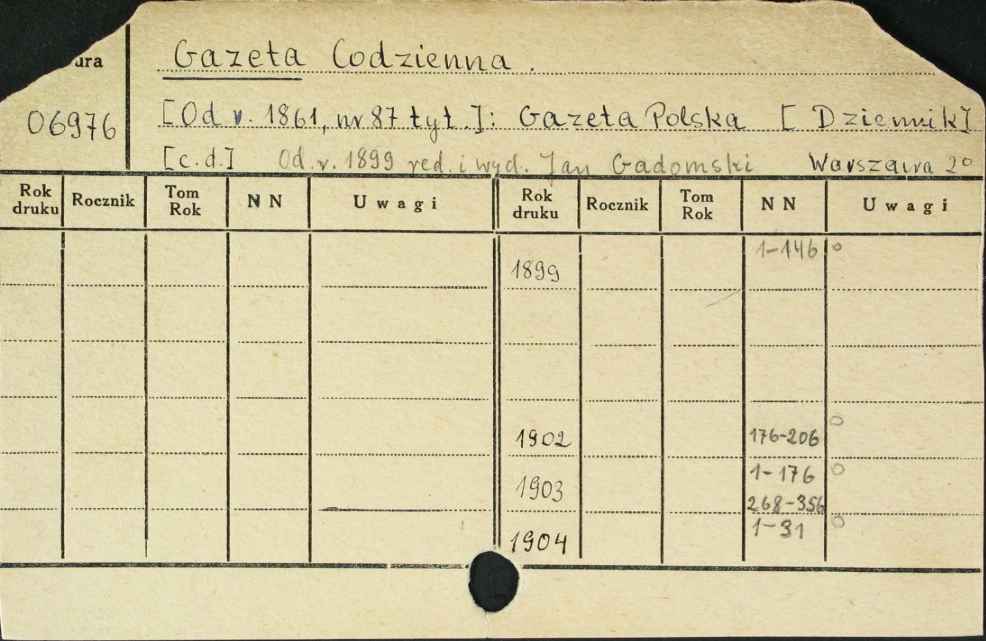 ura
Gazeta Codzienna.
06976
[Od r. 1861, nr 87 tyt.]: Gazeta Polska [Dziennik]
[c.d.] Od r. 1899 red. i wyd. Jan Gadomski Warszawa 2°
Rok druku Rocznik Tom Rok N N Uwagi Rok druku Rocznik Tom Rok N N Uwagi
1899 1-146 o
1902 176-206 o
1903 1-176 o
268-356
1904 1-31 o